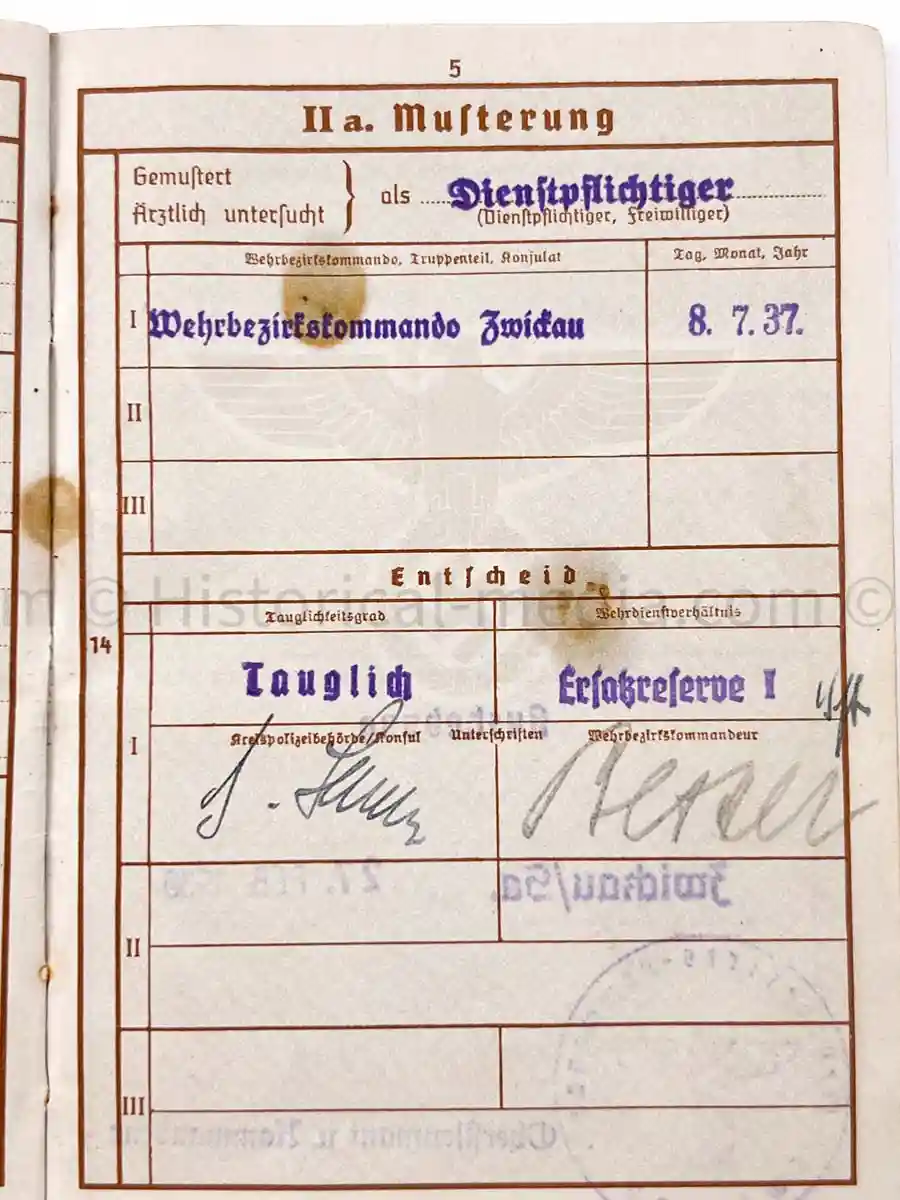 5
II a. Musterung
Gemustert
Ärztlich untersucht
als Dienstpflichtiger
(Dienstpflichtiger, Freiwilliger)
Wehrbezirkskommando, Truppenteil, Konsulat
Tag, Monat, Jahr
I Wehrbezirkskommando Zwickau 8. 7. 37.
II
III
Entscheid
© Historical-media.com ©
Tauglichkeitsgrad Wehrdienstverhältnis
14
Tauglich Ersatzreserve I
I
Kreispolizeibehörde/Konsul Unterschriften Wehrbezirkskommandeur
Zwickau/Sa. 27. FEB.
II
III
Oberstleutnant u. Kommandeur